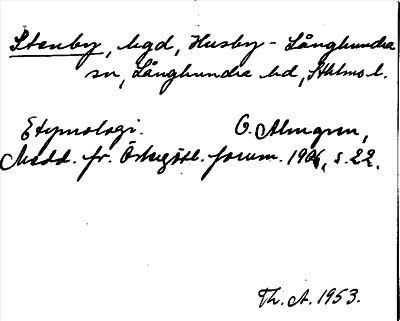 Stenby, hgd, Husby - Långhundra
sn, Långhundra hd, Sthlms l.
Etymologi. O. Almgren,
Medd. fr. Östergötl. fornm. 1906, s. 22.
Th. A. 1953.